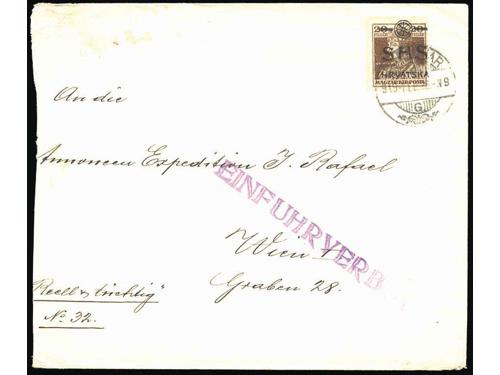 20 20
SHS
HRVATSKA
MAGYAR KIR. POSTA
G
An die
Annoncen Expedition J. Rafael
EINFUHRVERB
Wien 1
Graben 28.
"Reell & tüchtig"
No. 32.